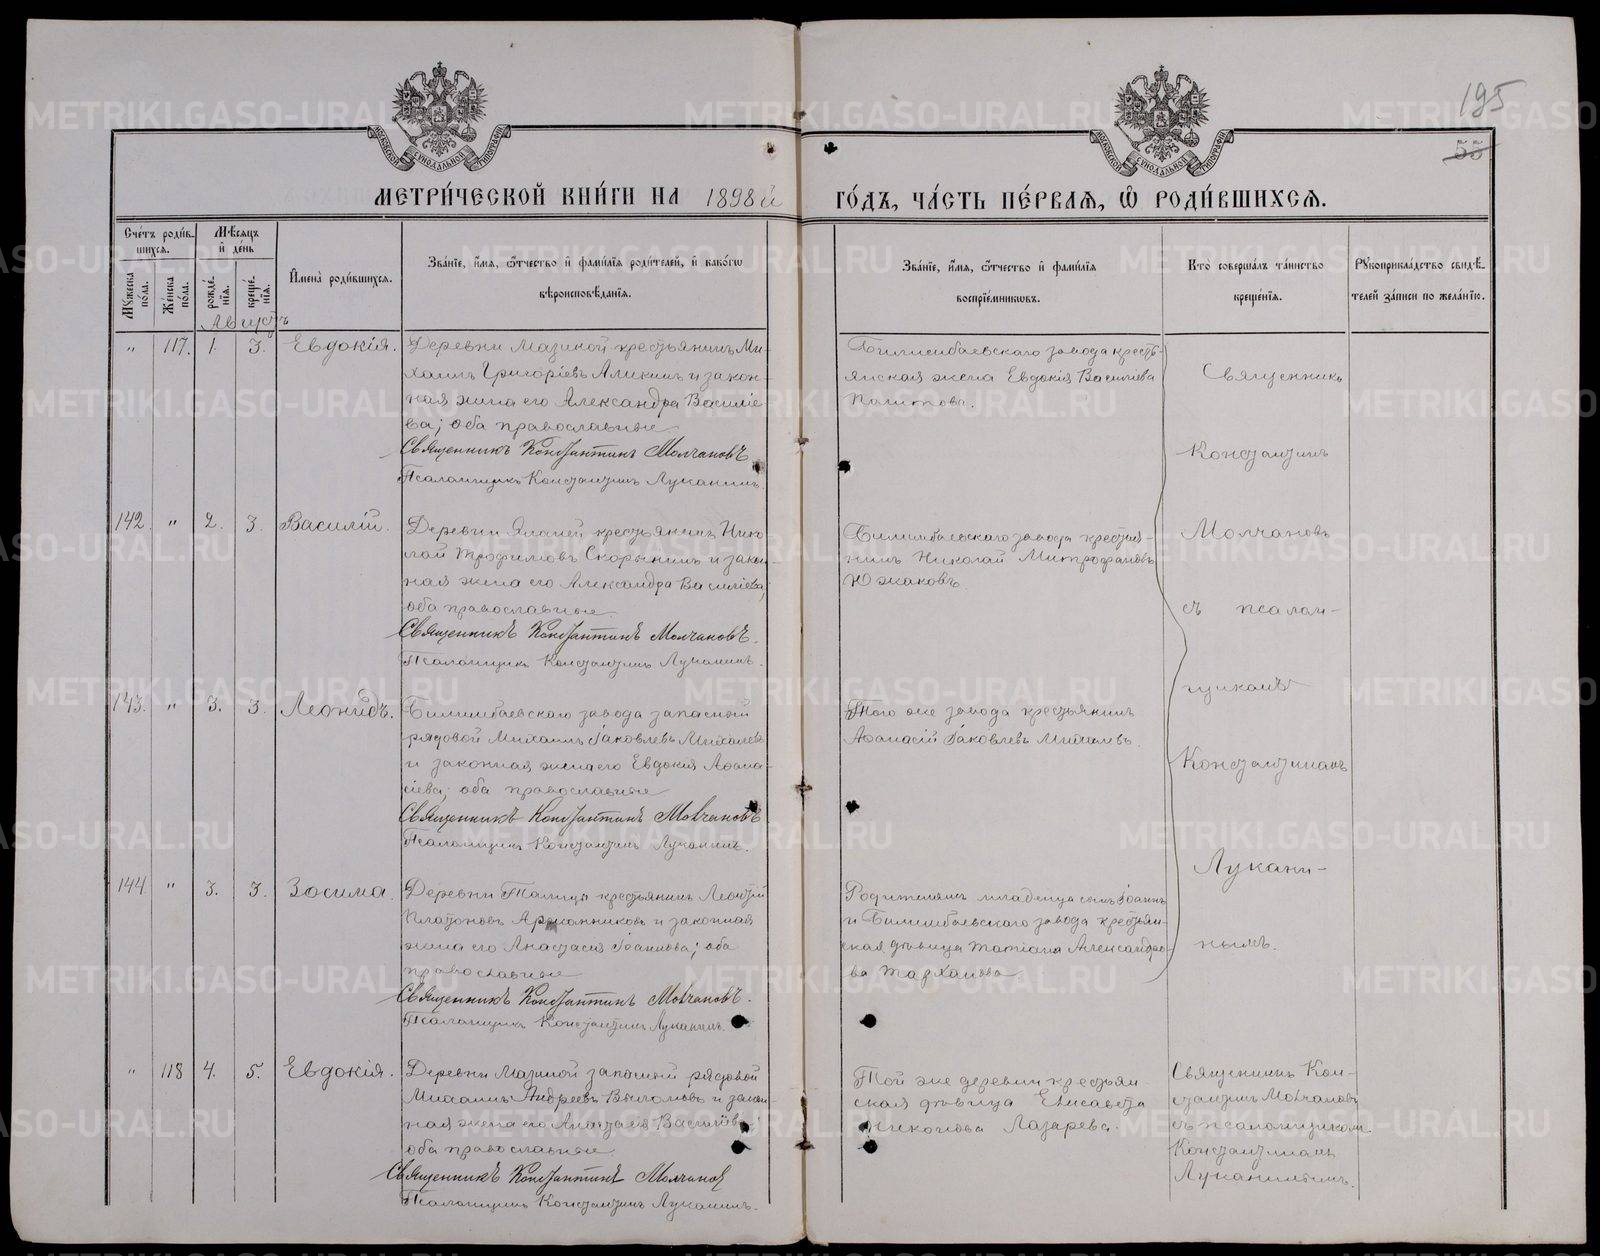 195
55
МЕТРИ́ЧЕСКОЙ КНИ́ГИ НА 1898й
ГО́ДЪ, ЧА́СТЬ ПЕ́РВАЯ, Ѿ РОДИ́ВШИХСЯ.
Сче́тъ роди́в-
шихся.
Мужеска по́ла.
Же́нска по́ла.
Мѣ́сяцъ
и́ де́нь
рожде́-
нія.
креще́-
нія.
И҆мена̀ роди́вшихся.
Зва́нїе, и҆́мя, ѻ҆́тчество и҆ фами́лїя роди́телей, и҆ како́гѡ
вѣроисповѣ́данїя.
Зва́нїе, и҆́мя, ѻ҆́тчество и҆ фами́лїя
воспрїе́мниковъ.
Кто̀ соверша́лъ та́инство
креще́нїя.
Рукоприкла́дство свидѣ́-
телей за́писи по жела́нїю.
Августъ
" 117. 1. 3. Евдокія.
Деревни Мазиной крестьянинъ Ми-
хаилъ Григоріевъ Аликинъ и закон-
ная жена его Александра Василіе-
ва; оба православные
Священникъ Константинъ Молчановъ
Псаломщикъ Константинъ Луканинъ.
Билимбаевскаго завода кресть-
янская жена Евдокія Василіева
142. " 2. 3. Василій.
Деревни крестьянинъ Нико-
лай Трофимовъ Скорынинъ и закон-
ная жена его Александра Василіева;
оба православные
Священникъ Константинъ Молчановъ.
Псаломщикъ Константинъ Луканинъ.
Билимбаевскаго завода крестья-
нинъ Николай Митрофановъ
Южаковъ.
143. " 3. 3. Леонидъ.
Билимбаевскаго завода запасный
рядовой Михаилъ Іаковлевъ Михалевъ
и законная жена его Евдокія Аѳана-
сіева; оба православные
Священникъ Константинъ Молчановъ.
Псаломщикъ Константинъ Луканинъ.
Того же завода крестьянинъ
Аѳанасій Іаковлевъ Михалевъ.
144 " 3. 3. Зосима.
Деревни Талицы крестьянинъ Леонтій
Платоновъ и законная
жена его Анастасія Іоаннова; оба
православные
Священникъ Константинъ Молчановъ.
Псаломщикъ Константинъ Луканинъ.
младенца сынъ Іоаннъ
и Билимбаевскаго завода крестьян-
ская дѣвица Татіана Александро-
ва Тарханова
Священникъ
Константинъ
Молчановъ
съ псалом-
щикомъ
Константиномъ
Лукани-
нымъ.
" 118 4. 5. Евдокія.
Деревни Мазиной запасный рядовой
Михаилъ Андреевъ и закон-
ная жена его Анастасія Василіева;
оба православные
Священникъ Константинъ Молчановъ
Псаломщикъ Константинъ Луканинъ.
Той же деревни крестьян-
ская дѣвица Елисавета
Никонова Лазарева.
Священникъ Кон-
стантинъ Молчановъ
съ псаломщикомъ
Константиномъ
Луканинымъ.